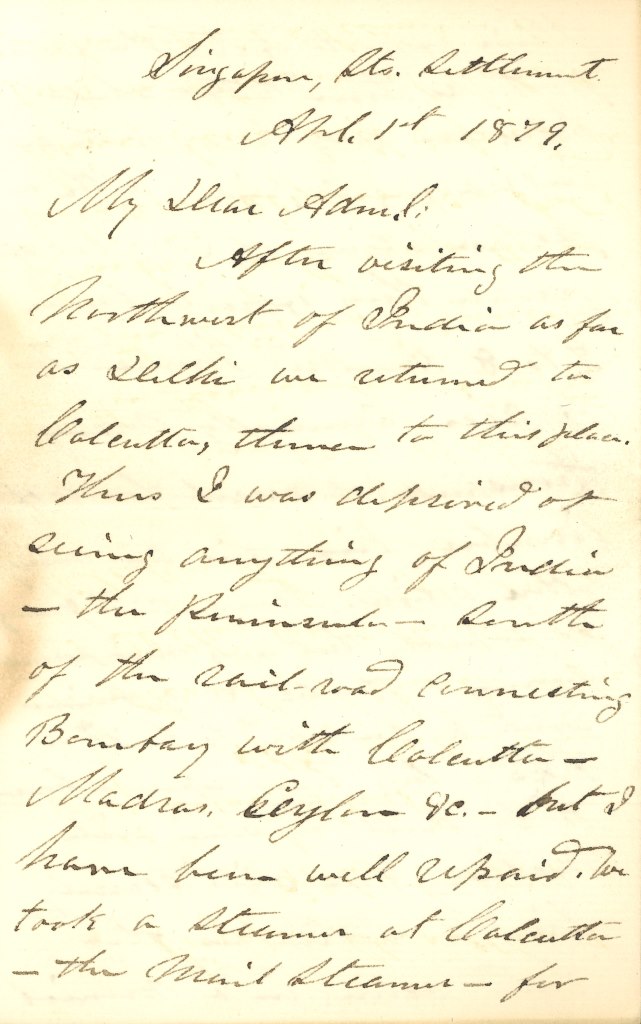 Singapore, Sts. Settlement.
Apl. 1st 1879.
My Dear Adml:
After visiting the
Northwest of India as far
as Delhi we returned to
Calcutta, thence to this place.
Thus I was deprived of
seeing anything of India
– the Peninsula – South
of the rail-road connecting
Bombay with Calcutta –
Madras, Ceylon &c. – but I
have been well repaid. We
took a steamer at Calcutta
– the Mail Steamer – for